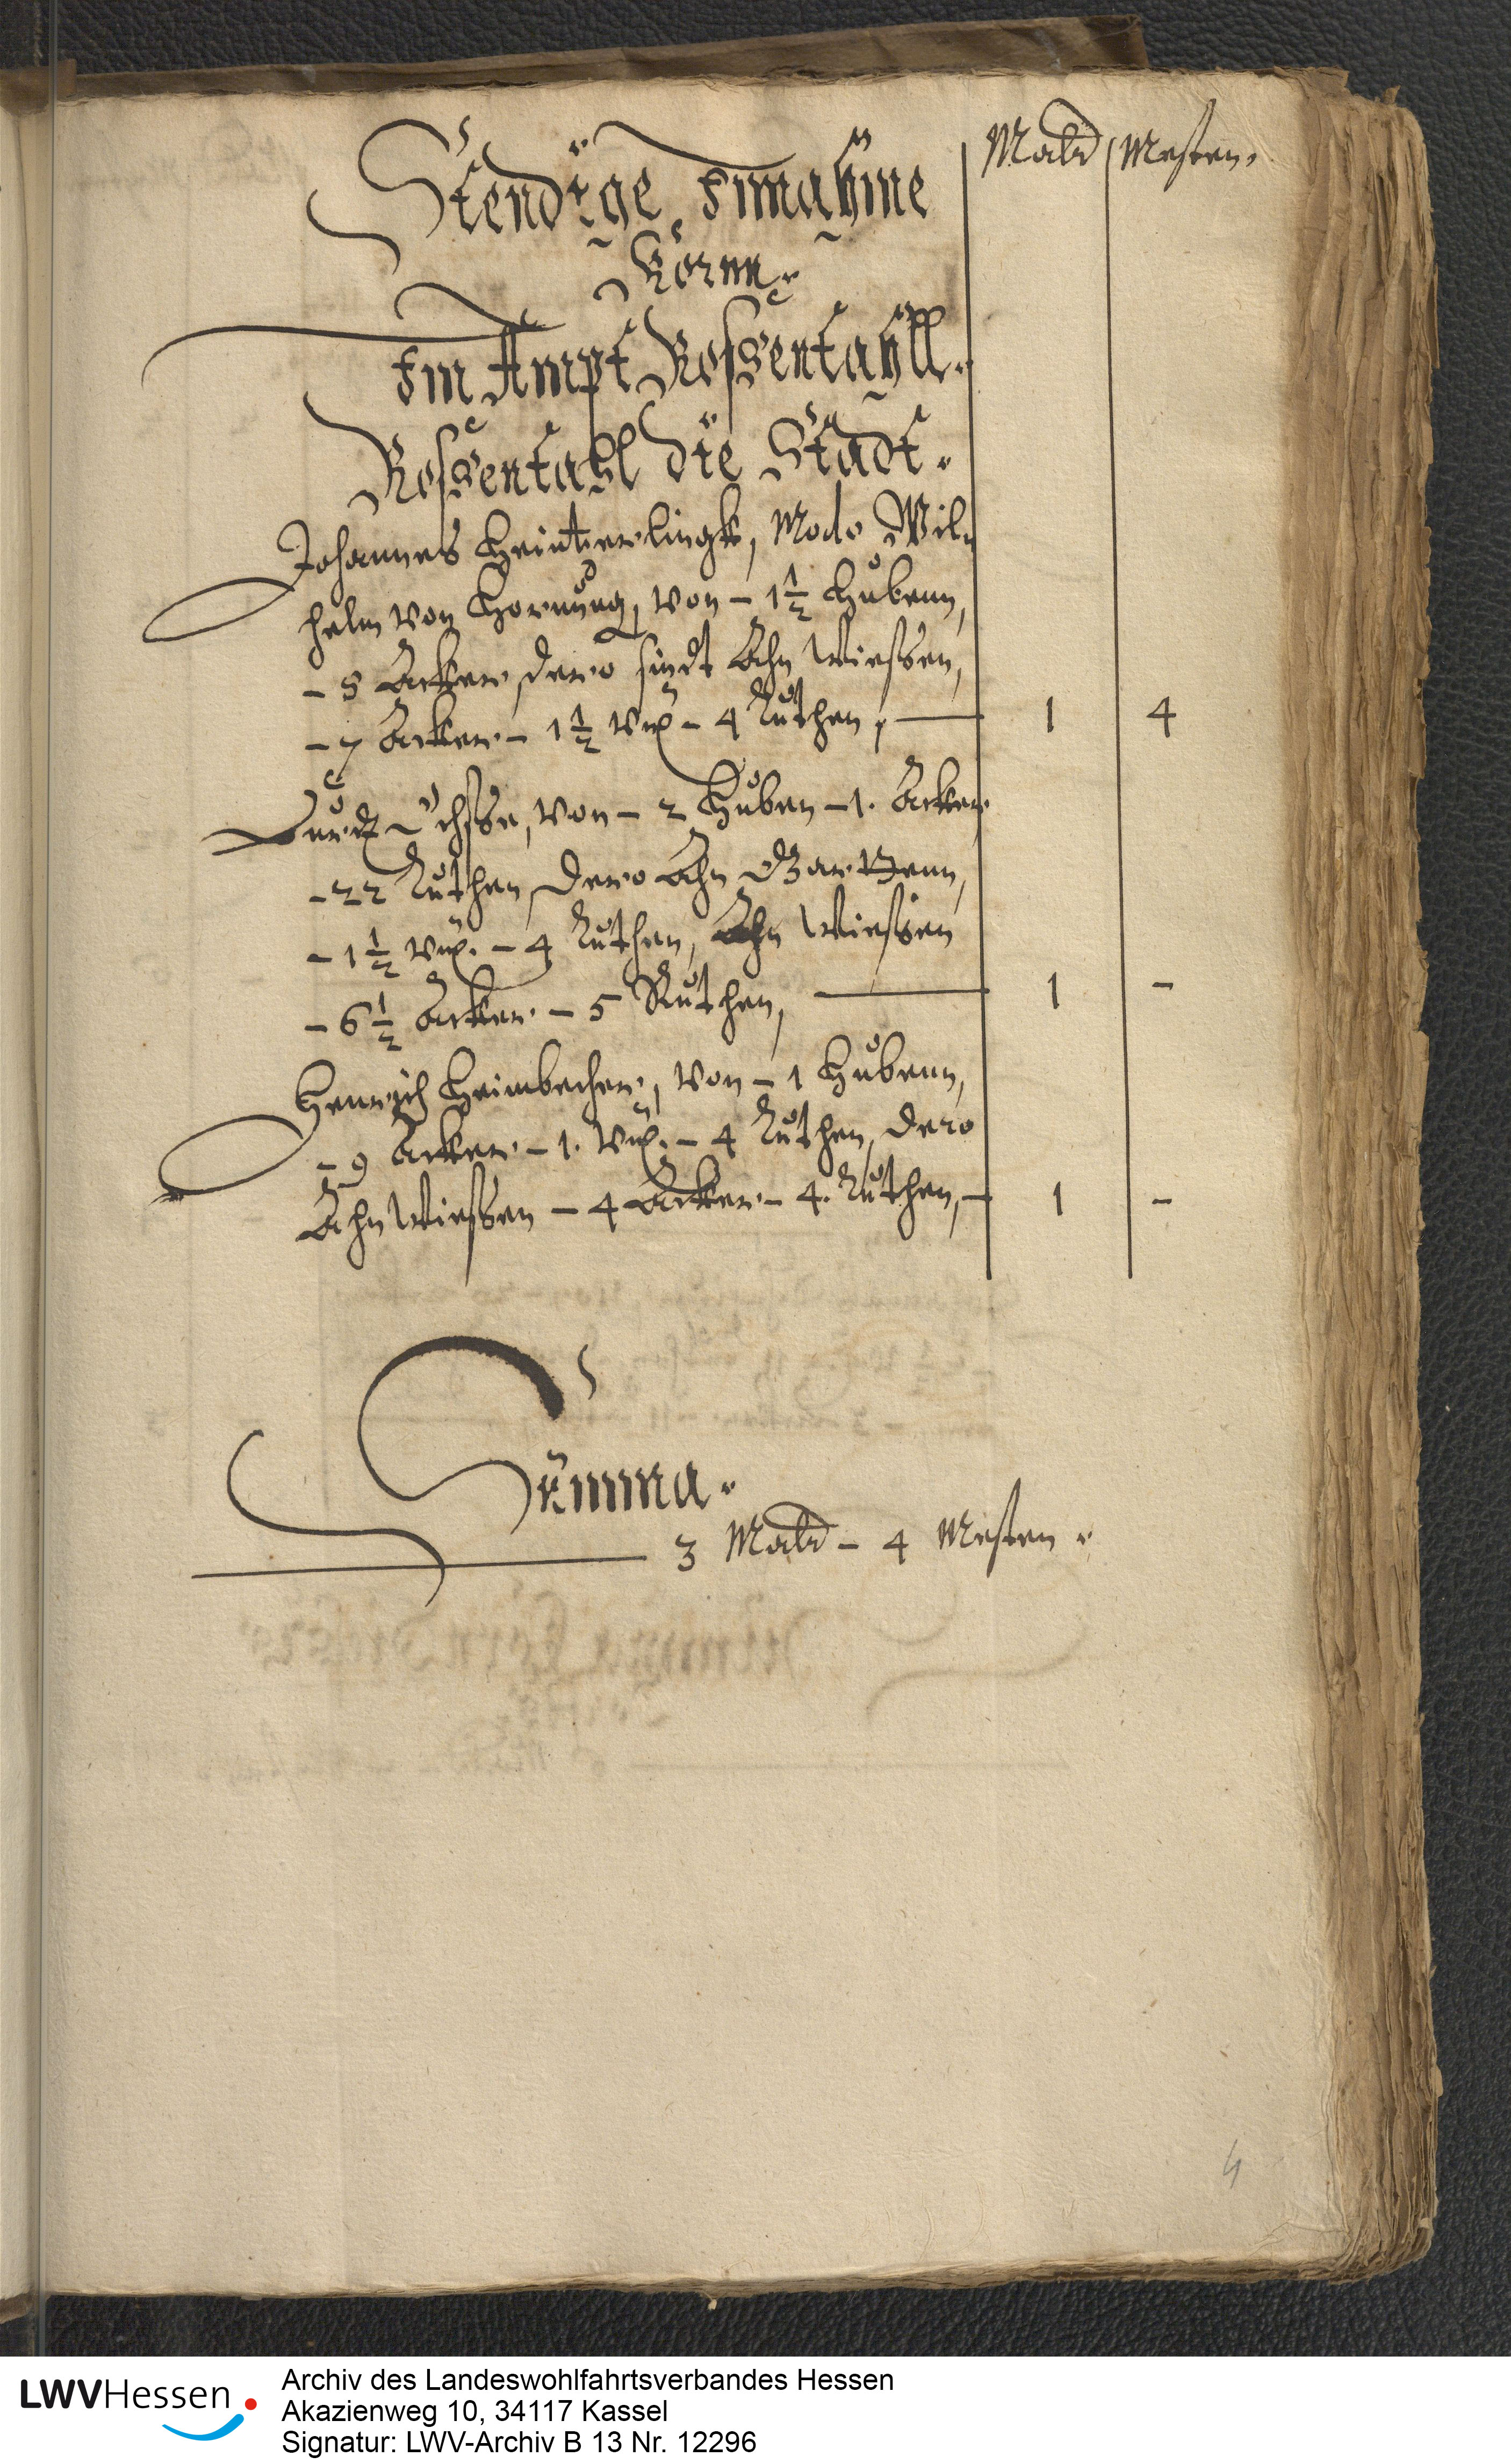 Mald Mesten.
Stendige Einnahme
Kornn.
Im Ampt Rossentahll.
Rossentahl die Stadt.
Johannes Heintzerlingk, Modo Wil-
helm von Hornung, von - 1½ Hubenn,
- 8 Acker, dero sindt Ahn Wiessen,
- 7 Acker - 1½ - 4 Ruthen, — 1 4
Curdt, von - 2 Huben - 1. Acker
- 22 Ruthen, dero Ahn Garttenn,
- 1½ - 4 Ruthen, Ahn Wiessen
- 6½ Acker - 5 Ruthen, — 1 -
Henrich Heimbecher, von - 1 Hubenn,
- 9 Acker - 1. - 4 Ruthen, dero
Ahn Wiessen - 4 Acker - 4. Ruthen, - 1 -
Summa.
3 Mald - 4 Mesten.
4
LWVHessen
Archiv des Landeswohlfahrtsverbandes Hessen
Akazienweg 10, 34117 Kassel
Signatur: LWV-Archiv B 13 Nr. 12296